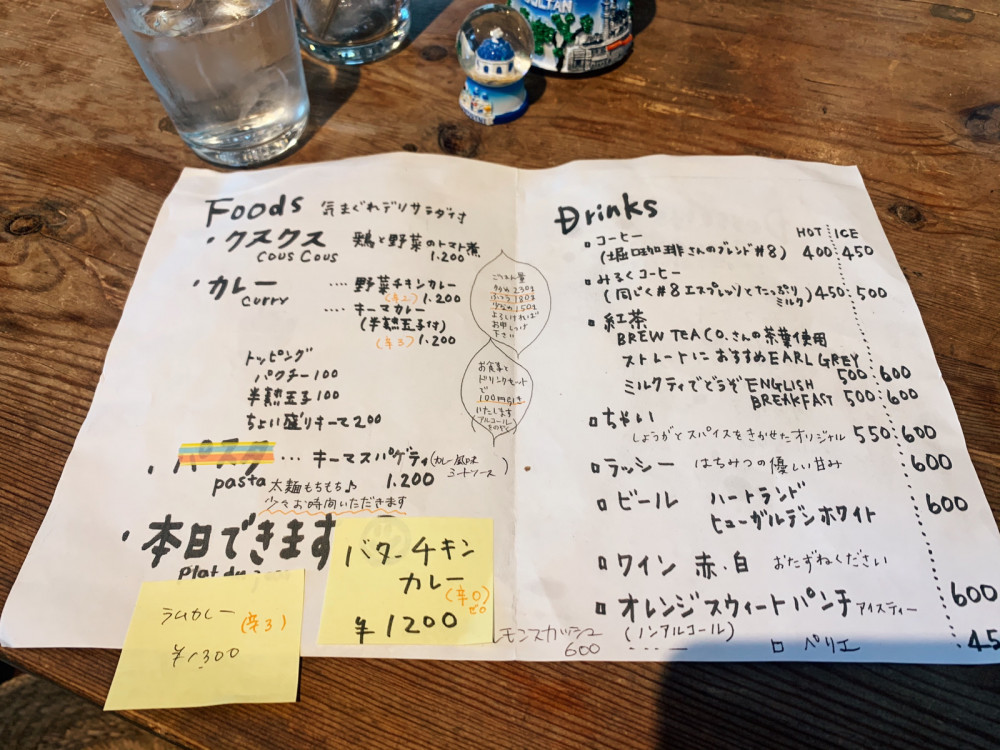 SULTAN
Foods 気まぐれデリサラダ付
・クスクス 鶏と野菜のトマト煮
cous cous 1.200
・カレー ‥‥ 野菜チキンカレー
curry (辛2) 1.200
‥‥ キーマカレー
(半熟玉子付)
(辛3) 1.200
トッピング
パクチー 100
半熟玉子 100
ちょい盛りキーマ 200
・パスタ ‥‥ キーマスパゲティ(カレー風味
ミートソース)
pasta 太麺もちもち♪ 1.200
少々お時間いただきます
・本日できます
Plat du jour
ラムカレー
(辛3)
¥1300
バターチキン
カレー
(辛0)
ゼロ
¥1200
ごはん量
多め 230g
ふつう 180g
少なめ 150g
よろしければ
お申しつけ
下さい
お食事と
ドリンクセット
で
100円引き
いたします
アルコール
Drinks
HOT ICE
▫ コーヒー
(堀口珈琲さんのブレンド#8) 400 450
▫ みるくコーヒー
(同じく#8エスプレッソとたっぷり
ミルク) 450 500
▫ 紅茶
BREW TEA CO.さんの茶葉使用
ストレートにおすすめ EARL GREY
500 600
ミルクティでどうぞ ENGLISH
BREAKFAST 500 600
▫ ちゃい
しょうがとスパイスをきかせたオリジナル 550 600
▫ ラッシー はちみつの優しい甘み 600
▫ ビール ハートランド 600
ヒューガルデンホワイト
▫ ワイン 赤・白 おたずねください
▫ オレンジスウィートパンチ アイスティー 600
(ノンアルコール)
モンスカッシュ
600
▫ ペリエ 45